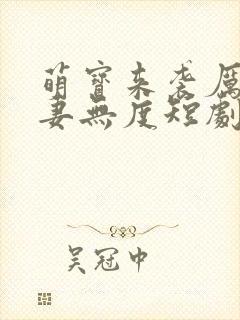 萌寶來袭厲
妻無度短劇
吴冠中